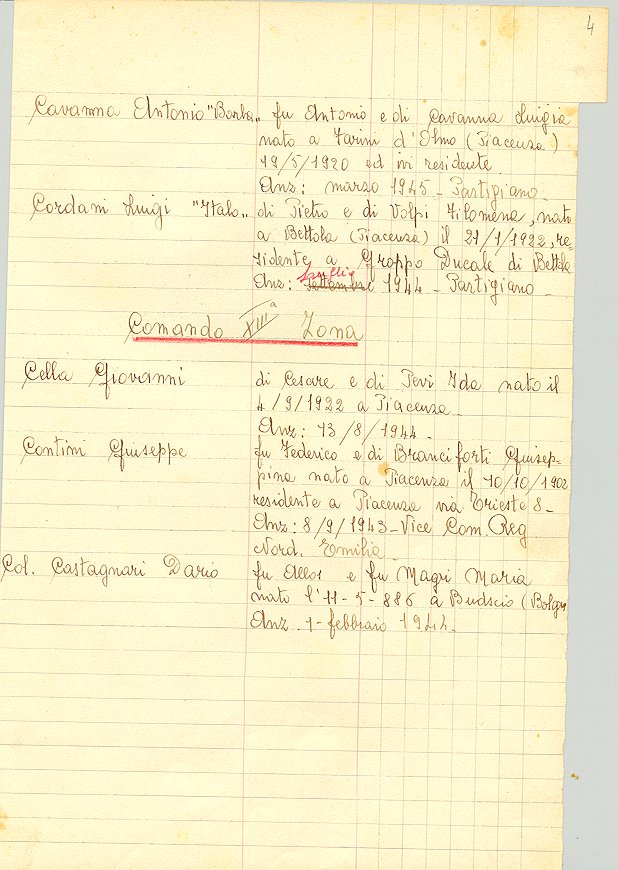 4
Cavanna Antonio "Barba" fu Antonio e di Cavanna Luigia
nato a Farini d'Olmo (Piacenza)
19/5/1920 ed ivi residente
Anz: marzo 1945 - Partigiano -
Cordani Luigi "Italo" di Pietro e di Volpi Filomena, nato
a Bettola (Piacenza) il 21/1/1922, re-
sidente a Groppo Ducale di Bettola
luglio
Anz: Settembre 1944 - Partigiano -
Comando XIIIª Zona
Cella Giovanni di Cesare e di Pevi Ida nato il
4/9/1922 a Piacenza
Anz: 13/8/1944 -
Contini Giuseppe fu Federico e di Branciforti Giusep-
pina nato a Piacenza il 10/10/1902
residente a Piacenza via Trieste 8 -
Anz: 8/9/1943 - Vice Com. Reg
Nord. Emilia -
Col. Castagnari Dario fu e fu Magri Maria
nato l'11-5-886 a (Bologn
Anz. 1- febbraio 1944.